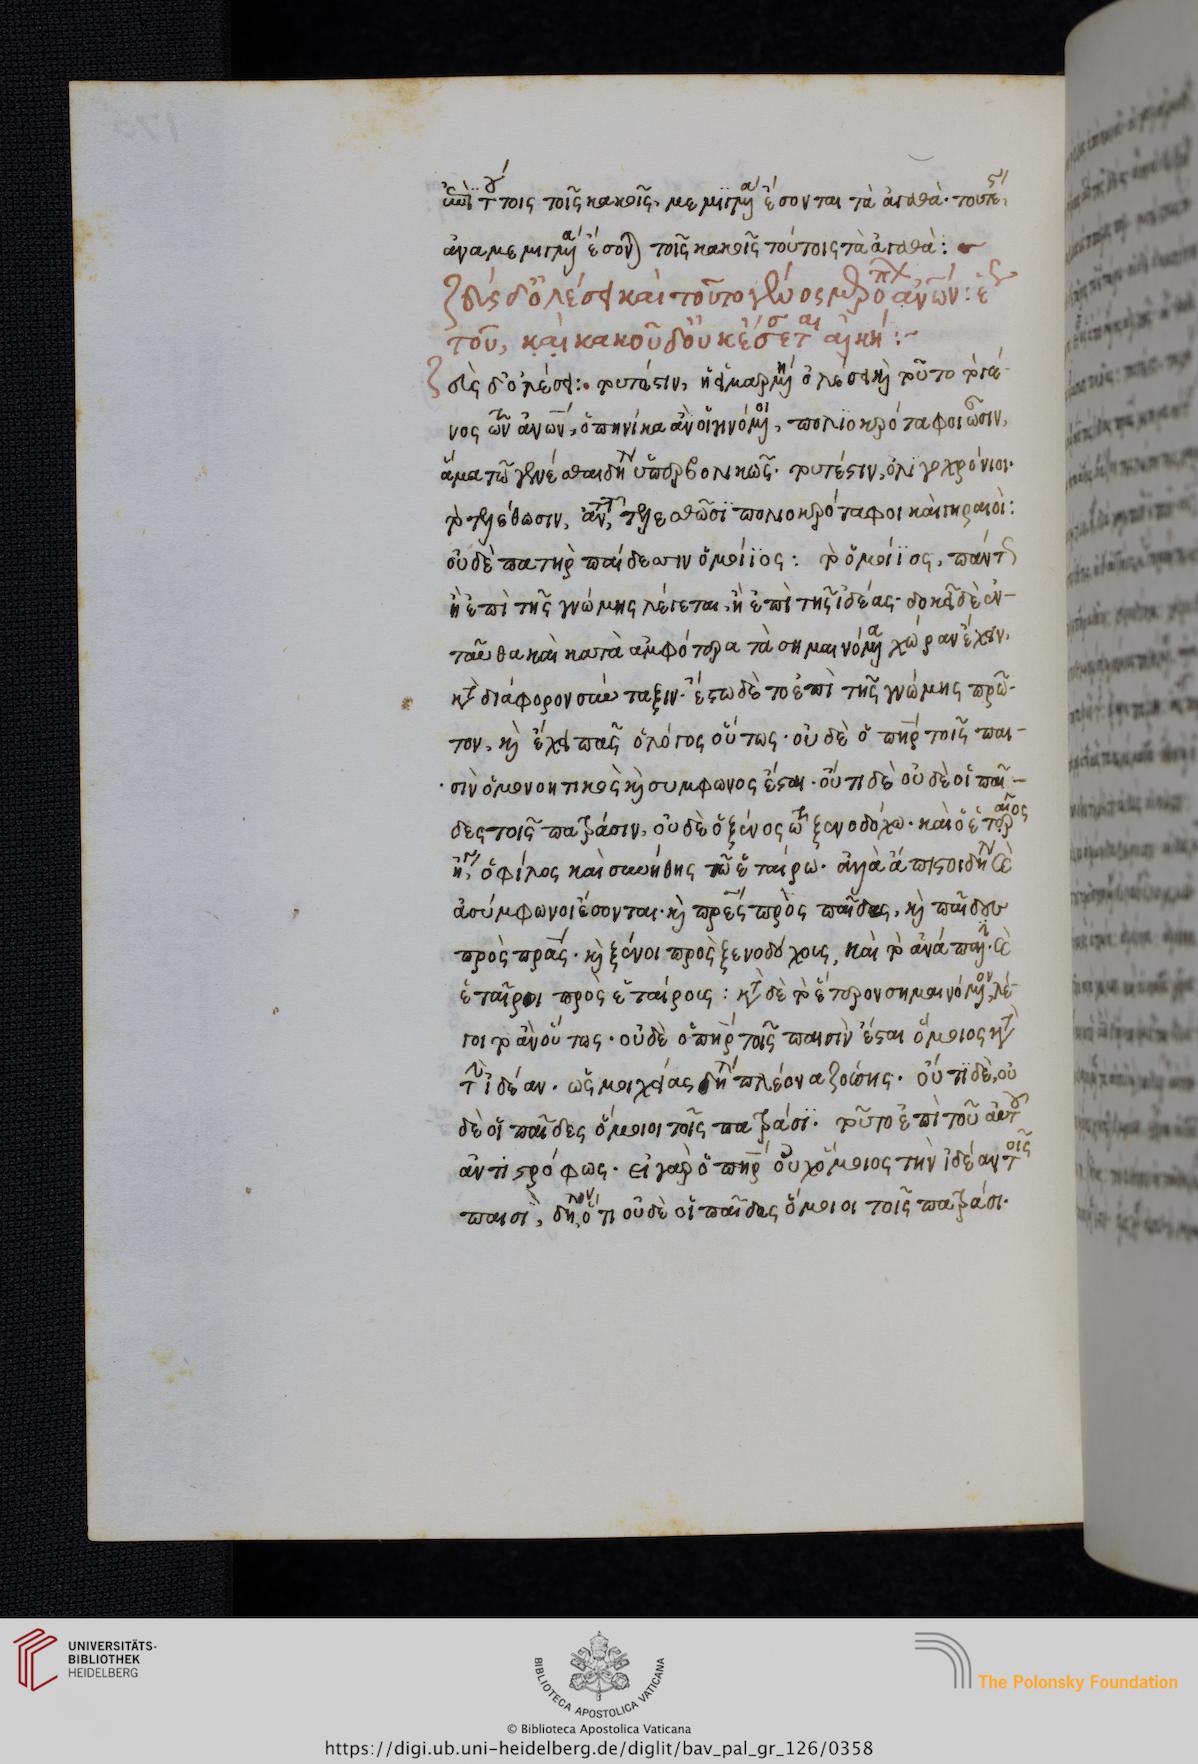 τοις τοῖς κακοῖς, μεμϊγμα ἔσονται τὰ ἀγαθὰ· τουτέ,
ἀναμεμιγμα ἔσον τοῖς κακοῖς τούτοις τὰ ἀγαθὰ:
Ζεὺς δ' ὀλέσει καὶ τοῦτο γένος μερόπων ἀνων: ἑ
του, καὶ κακοῦ δ' οὐκ ἔσσεται ἀλκή:
Ζεὺς δ' ὀλέσει: τουτέστιν, ἡ εἱμαρμη ὀλέσει κὶ τοῦτο τὸ γέ-
νος τῶν ἀνων, ὁπηνίκα ἂν οἱ γινόμοι, πολϊοκρόταφοι ὦσιν,
ἅμα τῶ γενέσθαι δη ὑπερβολικῶς· τουτέστιν, ὀλϊγοχρόνιοι·
πολιοκρόταφοι καὶ γηραιοὶ:
οὐδὲ πατὴρ παίδεσσιν ὁμοίϊος: τὸ ὁμοίϊος, πάντ
ἢ ἐπὶ τῆς γνώμης λέγεται, ἢ ἐπὶ τῆς ἰδέας· δοκεῖ δὲ ἐν-
ταῦθα καὶ κατὰ ἀμφότερα τὰ σημαινόμα χώραν ἔχειν,
κτ διάφορον σύνταξιν· ἔστω δὲ τὸ ἐπὶ τῆς γνώμης πρῶ-
τον, κὶ ἔχει πᾶς ὁ λόγος οὕτως· οὐδὲ ὁ πηρ τοῖς παι-
σὶν ὁμονοητικὸς κὶ συμφωνος ἔσται· οὔτι δὲ οὐδὲ οἱ παῖ-
δες τοῖς πατράσιν, οὐδὲ ὁ ξένος τῶ ξενοδόχω· καὶ ὁ ἑταῖρος
ὁ φίλος καὶ συνήθης τῶ ἑταίρω· ἀλλὰ ἄπιστοι δη κὶ
ἀσύμφωνοι ἔσονται· κὶ πρες πρὸς παῖδας, κὶ παῖδες
πρὸς πρας· κὶ ξένοι πρὸς ξενοδόχους, καὶ τὸ ἀνάπαλιν· κὶ
ἑταῖροι πρὸς ἑταίρους: κτ δὲ τὸ ἕτερον σημαινόμον, λέ-
γοιτο ἂν οὕτως· οὐδὲ ὁ πηρ τοῖς παισὶν ἔσται ὅμοιος κτ
τ ἰδέαν· ὡς μοιχείας δη πλεοναζούσης· οὔτϊ δὲ, οὐ
δὲ οἱ παῖδες ὅμοιοι τοῖς πατράσϊ· τοῦτο ἐπὶ τοῦ αὐτ
ἀντιστρόφως· εἰ γὰρ ὁ πηρ οὐχ ὅμοιος τὴν ἰδέαν τοῖς
παισὶ, δῆλον ὅτι οὐδὲ οἱ παῖδες ὅμοιοι τοῖς πατράσι·
UNIVERSITÄTS-
BIBLIOTHEK
HEIDELBERG
BIBLIOTECA APOSTOLICA VATICANA
The Polonsky Foundation
© Biblioteca Apostolica Vaticana
https://digi.ub.uni-heidelberg.de/diglit/bav_pal_gr_126/0358